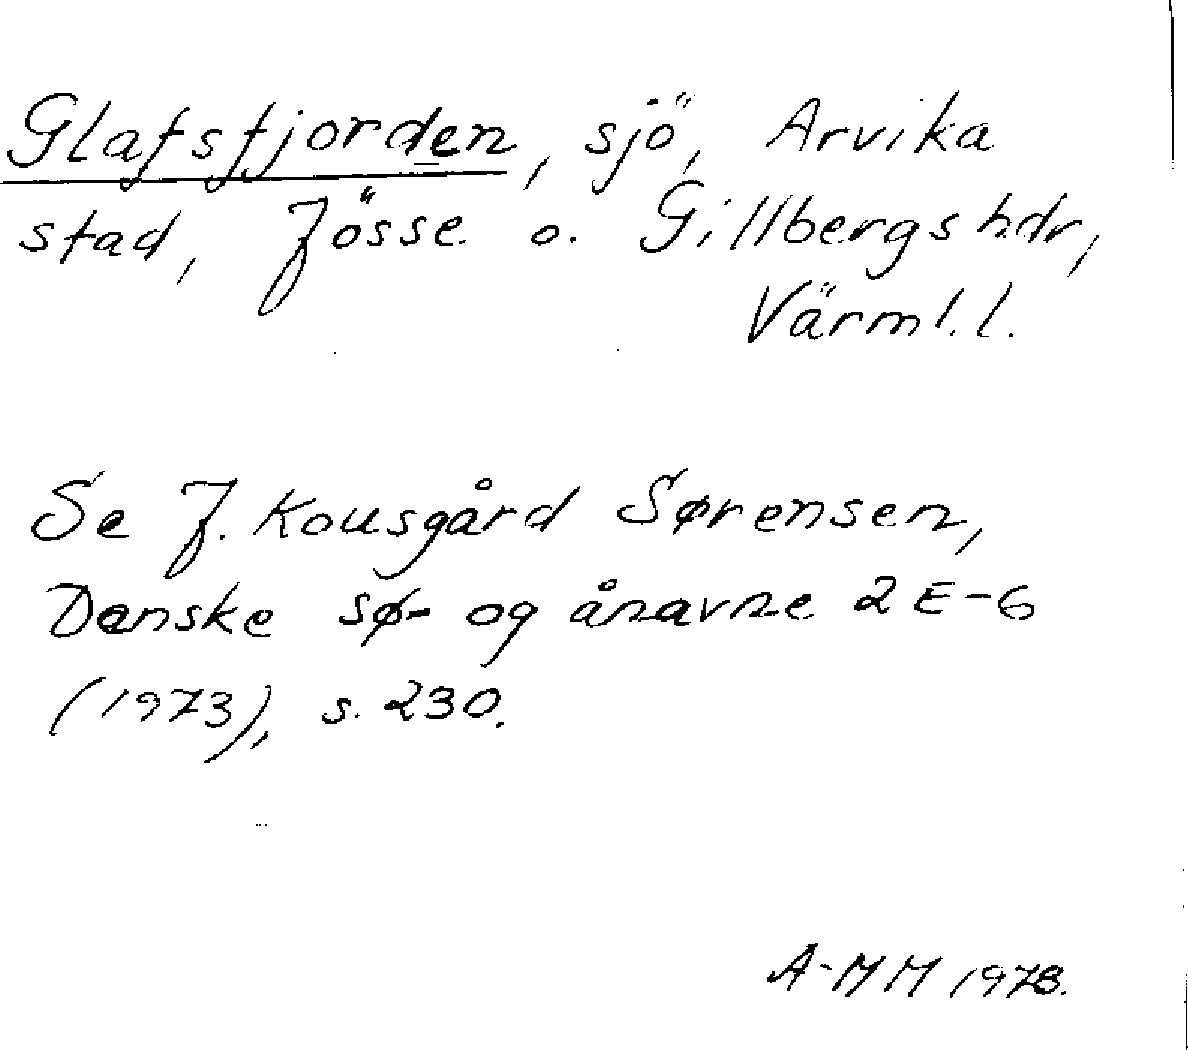 Glafsfjorden, sjö, Arvika
stad, Jösse o. Gillbergs hdr,
Värml. l.
Se J. Kousgård Sørensen,
Danske sø- og ånavne 2 E-G
(1973), s. 230.
A-MM 1978.